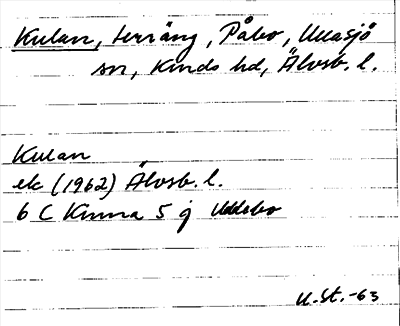 Kulan, terräng, Påbo, Ullasjö
sn, Kinds hd, Älvsb. l.
Kulan
ek (1962) Älvsb. l.
6 C Kinna 5 j Uddebo
U. St. -63